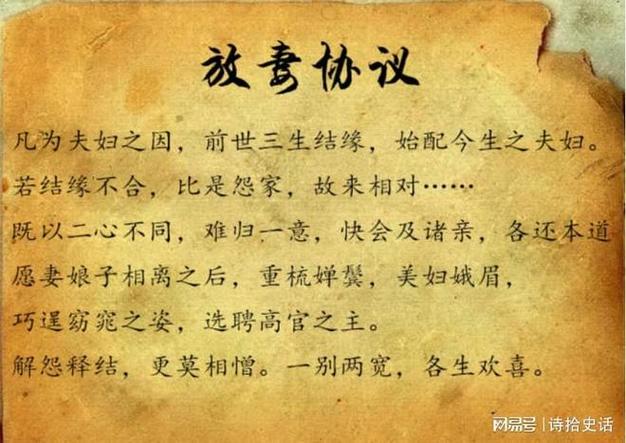 放妻协议
凡为夫妇之因，前世三生结缘，始配今生之夫妇。
若结缘不合，比是怨家，故来相对……
既以二心不同，难归一意，快会及诸亲，各还本道
愿妻娘子相离之后，重梳婵鬓，美妇娥眉，
巧逞窈窕之姿，选聘高官之主。
解怨释结，更莫相憎。一别两宽，各生欢喜。
网易号|诗拾史话